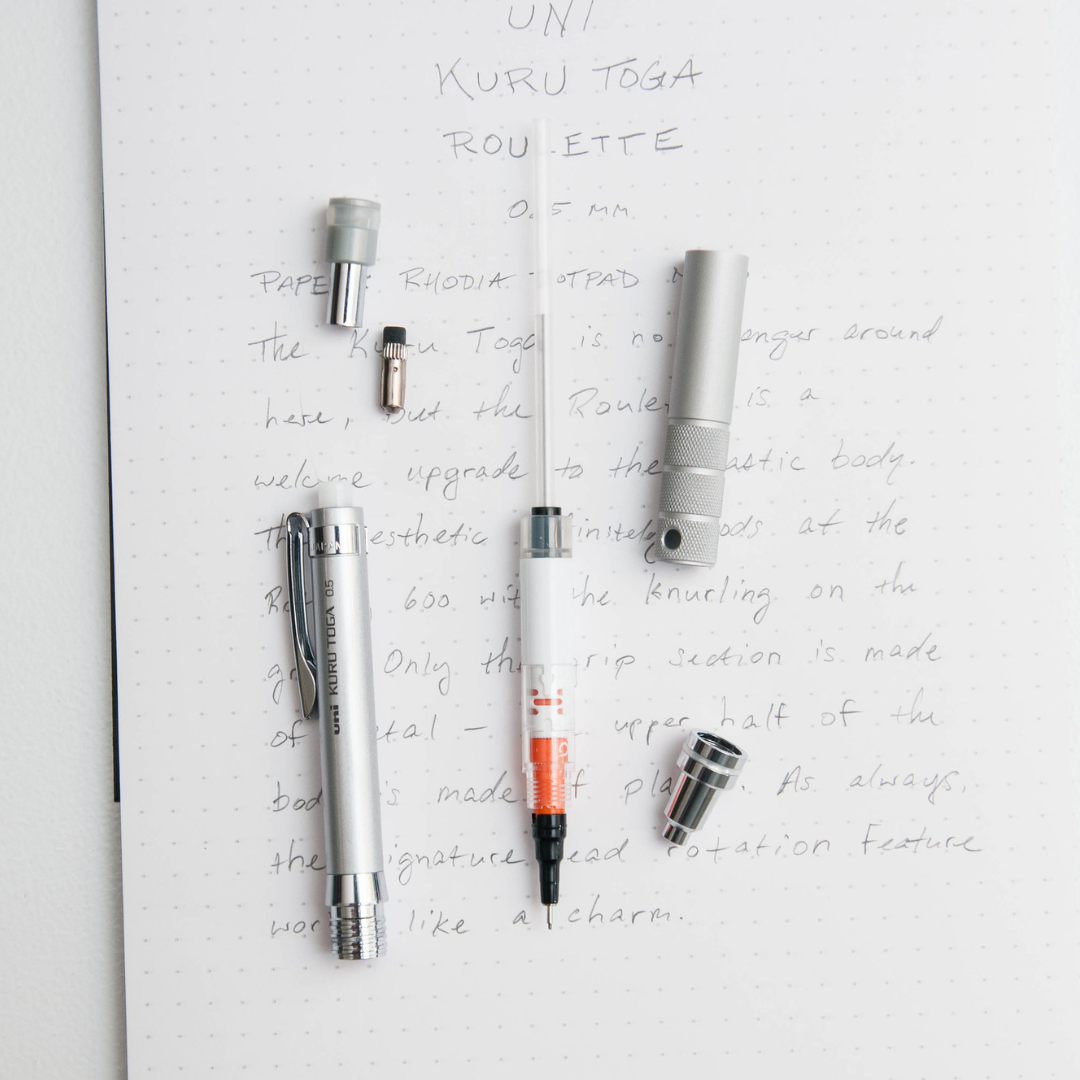 UNI
KURU TOGA
ROULETTE
0.5 MM
PAPER: RHODIA DOTPAD
The Kuru Toga is no stranger around
here, but the Roulette is a
welcome upgrade to the plastic body.
The aesthetic definitely nods at the
600 with the knurling on the
grip. Only the grip section is made
of metal – the upper half of the
body is made of plastic. As always,
the signature lead rotation feature
works like a charm.
JAPAN
uni KURU TOGA 0.5